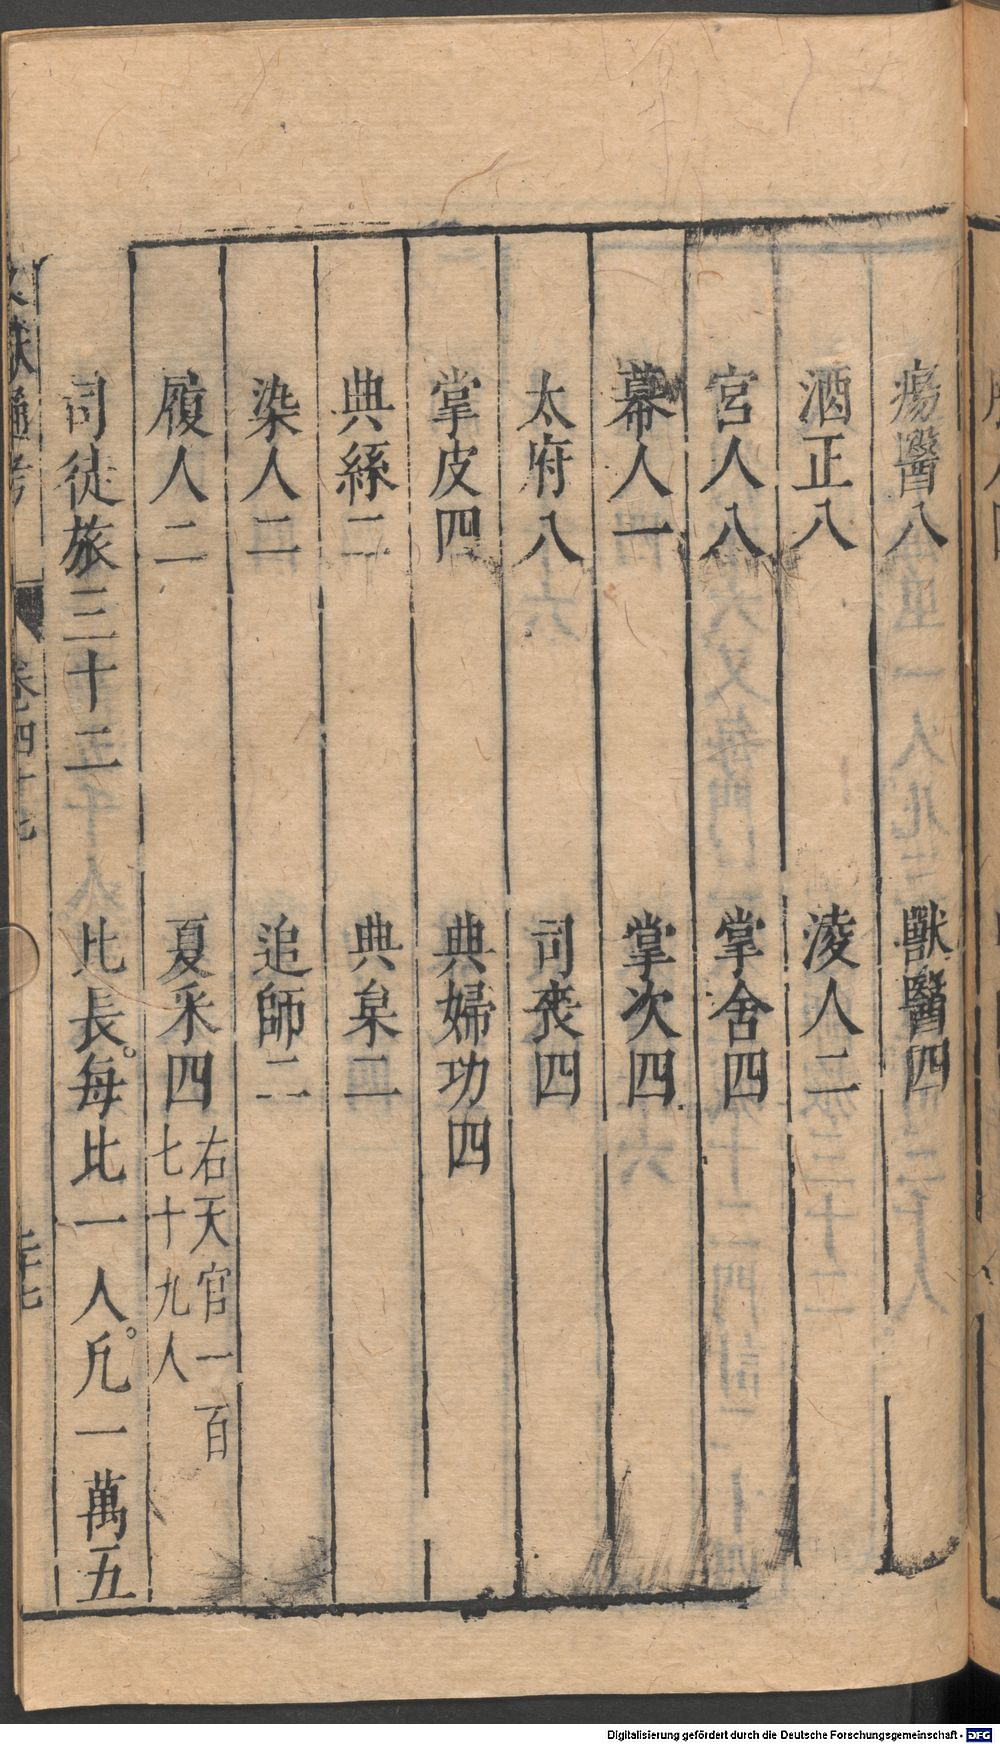 瘍醫八　獸醫四
酒正八　淩人二
宮人八　掌舍四
幕人一　掌次四
太府八　司裘四
掌皮四　典婦功四
典絲二　典枲二
染人二　追師二
履人二　夏采四　右天官一百
七十九人
司徒旅三十二　比長。每比一人。凡一萬五
文獻通考　卷四十七　二十七
Digitalisierung gefördert durch die Deutsche Forschungsgemeinschaft - DFG